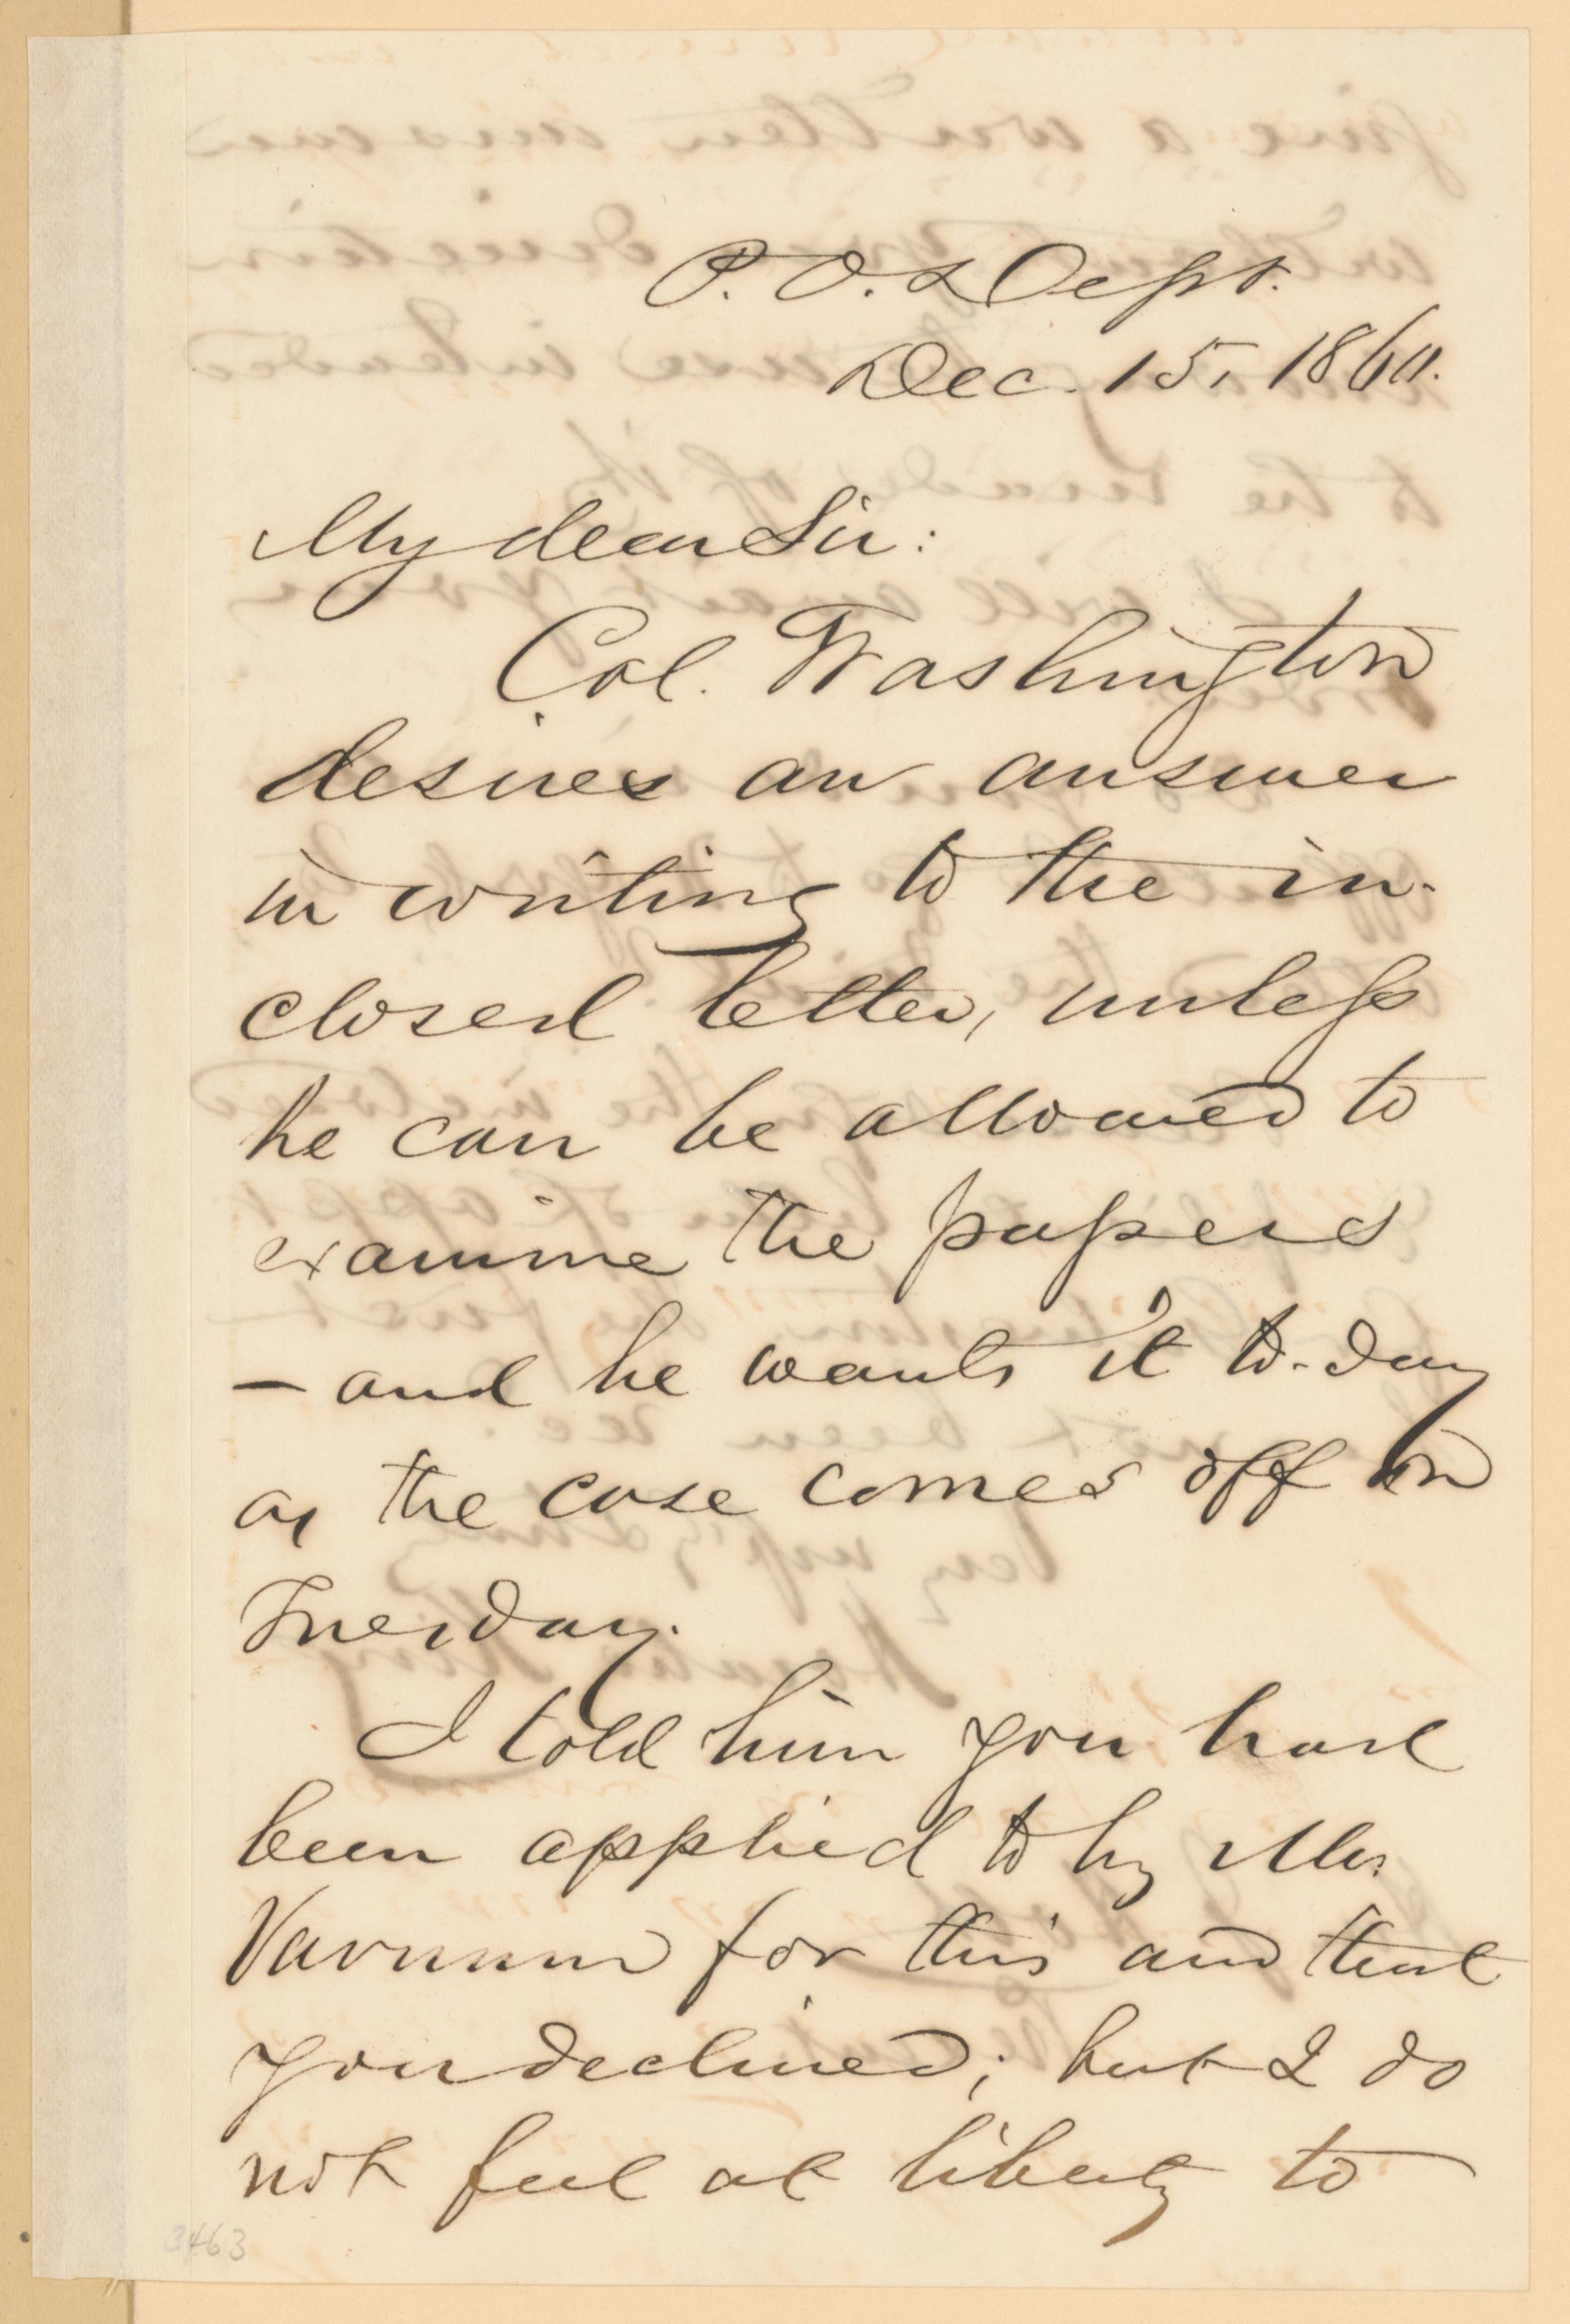 P. O. Dept.
Dec. 15, 1860.
My dear Sir:
Col. Washington
desires an answer
in writing to the in-
closed letter, unless
he can be allowed to
examine the papers
— and he wants it to-day
as the case comes off on
Tuesday.
I told him you had
been applied to by Mr.
Varnum for this and that
you declined; but I do
not feel at liberty to
3463